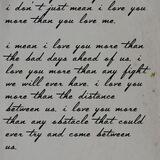 i don't just mean i love you
more than you love me.
i mean i love you more than
the bad days ahead of us. i
love you more than any fight
we will ever have. i love you
more than the distance
between us. i love you more
than any obstacle that could
ever try and come between
us.